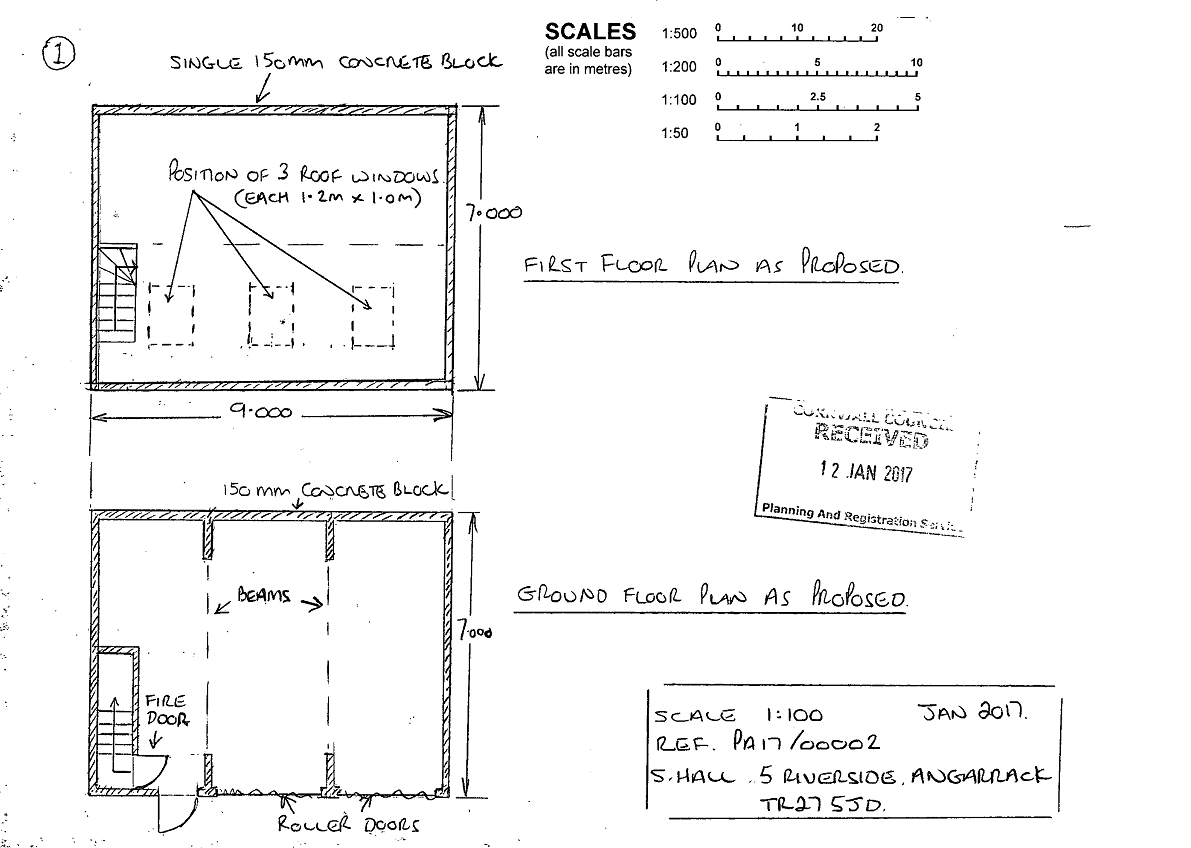 1
SINGLE 150mm CONCRETE BLOCK
SCALES
(all scale bars
are in metres)
1:500 0 10 20
1:200 0 5 10
1:100 0 2.5 5
1:50 0 1 2
POSITION OF 3 ROOF WINDOWS
(EACH 1·2M x 1·0M)
7·000
FIRST FLOOR PLAN AS PROPOSED.
9·000
CORNWALL COUNCIL
RECEIVED
12 JAN 2017
Planning And Registration Service
150mm CONCRETE BLOCK
BEAMS
GROUND FLOOR PLAN AS PROPOSED.
7·000
FIRE
DOOR
ROLLER DOORS
SCALE 1:100 JAN 2017.
REF. PA17/00002
S.HALL . 5 RIVERSIDE, ANGARRACK
TR27 5JD.